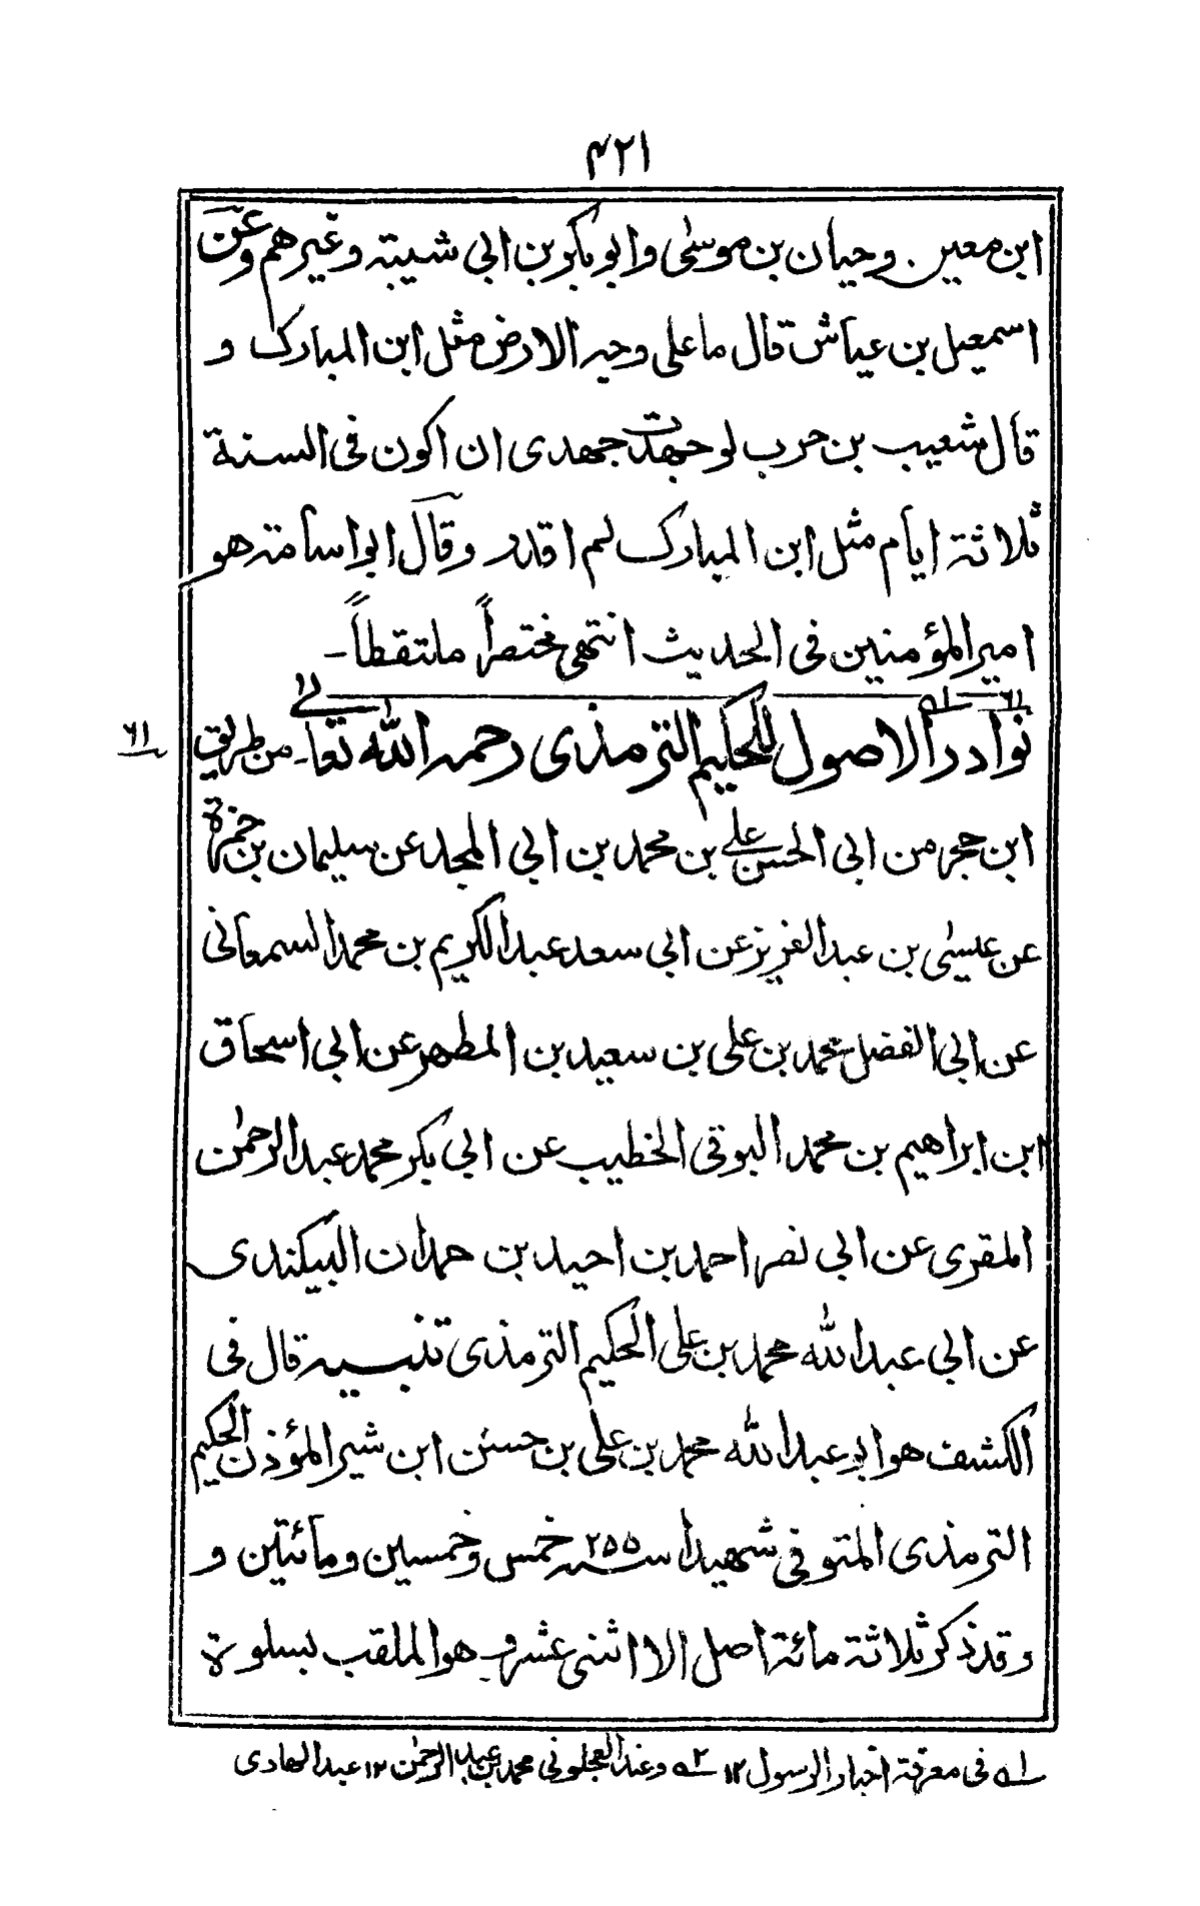 ۴۲۱
ابن معين وحيان بن موسىٰ وابو بكر بن ابي شيبة وغيرهم وعن
اسمعيل بن عياش قال ما على وجه الارض مثل ابن المبارك و
قال شعيب بن حرب لوجهدت جهدى ان اكون فى السنة
ثلاثة ايام مثل ابن المبارك لم اقدر وقال ابو اسامة هو
امير المؤمنين فى الحديث انتهى مختصراً ملتقطاً۔
نوادر الاصول للحكيم الترمذى رحمه الله تعالىٰ۔ من طريق
٦١
ابن حجر من ابى الحسن على بن محمد بن ابى المجد عن سليمان بن حمزة
عن عيسىٰ بن عبد العزيز عن ابى سعد عبد الكريم بن محمد السمعانى
عن ابى الفضل محمد بن على بن سعيد بن المطهر عن ابى اسحاق
ابن ابراهيم بن محمد البوقى الخطيب عن ابى بكر محمد عبد الرحمٰن
المقرى عن ابى نصر احمد بن احيد بن حمدان البيكندى
عن ابى عبد الله محمد بن على الحكيم الترمذى تنبيه قال فى
الكشف هو ابو عبد الله محمد بن على بن حسن ابن شير المؤذن الحكيم
الترمذى المتوفى شهيدا سنه ۲۵۵ خمس وخمسين ومائتين و
وقد ذكر ثلاثة مائة اصل الا اثنى عشر و هو الملقب بسلوة
له فى معرفة اخبار الرسول ١٢ ٢ه وعند العجلونى محمد بن عبد الرحمٰن ١٢ عبد الهادى